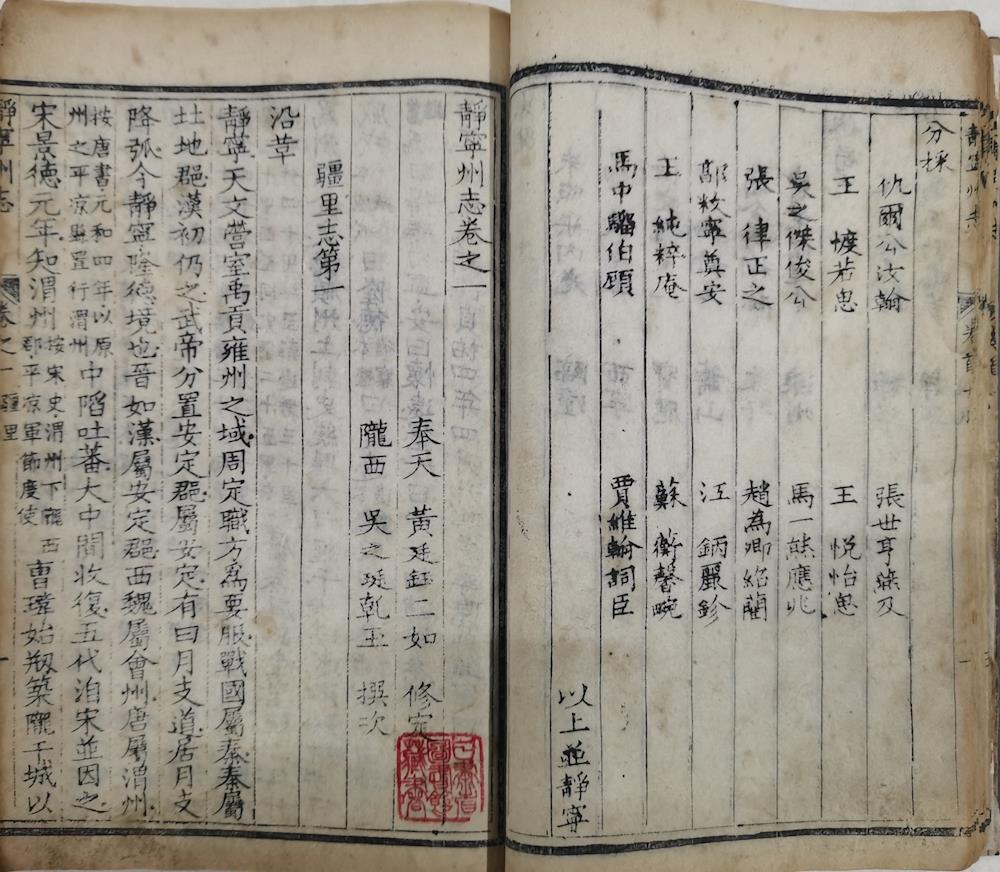 分採
仇爾公汝翰 張世耳
王 慷若思 王 悅怡思
吳之傑俊公 馬一熊應兆
張 律正之 趙為卿紹藺
鄢敉寧奠安 江 鈵麗鉁
王 純粹庵 蘇 衡馨畹
馬中驑伯頤 賈維翰詞臣
以上並靜寧
靜寧州志卷之一
奉天 黃廷鈺二如 修定
隴西 吳之珽乾玉 撰次
疆里志第一
沿革
靜寧天文營室禹貢雍州之域周定職方為要服戰國屬秦秦屬
北地郡漢初仍之武帝分置安定郡屬安定有曰月支道居月支
降孤今靜寧隆德境也晉如漢屬安定郡西魏屬會州唐屬渭州
按唐書元和四年以原
州之平涼縣置行渭州
中陷吐蕃大中間收復五代洎宋並因之
按宋史渭州下隴西
郡平涼軍節度使
宋景德元年知渭州
曹瑋始剏築隴干城以
靜寧州志 卷之一 疆里 一
甘肅省圖書館藏書